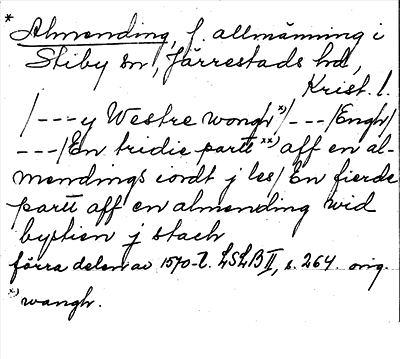 * Almending, f. allmänning i
Stiby sn, Järrestads hd,
Krist. l.
/---y Westre wongh x)/---/Engh/
---/En tridie partt xx) aff en al-
mendings iordt j les/ En fierde
partt aff en almending wid
bystien j stach
förra delen av 1570-t. LSLB II, s. 264. orig.
x) wangh.